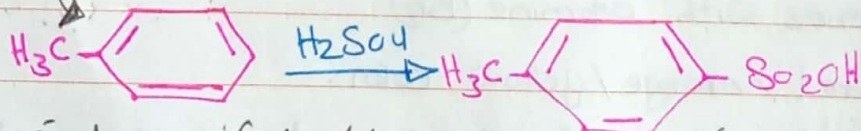 H3C H2SO4 H3C SO2OH